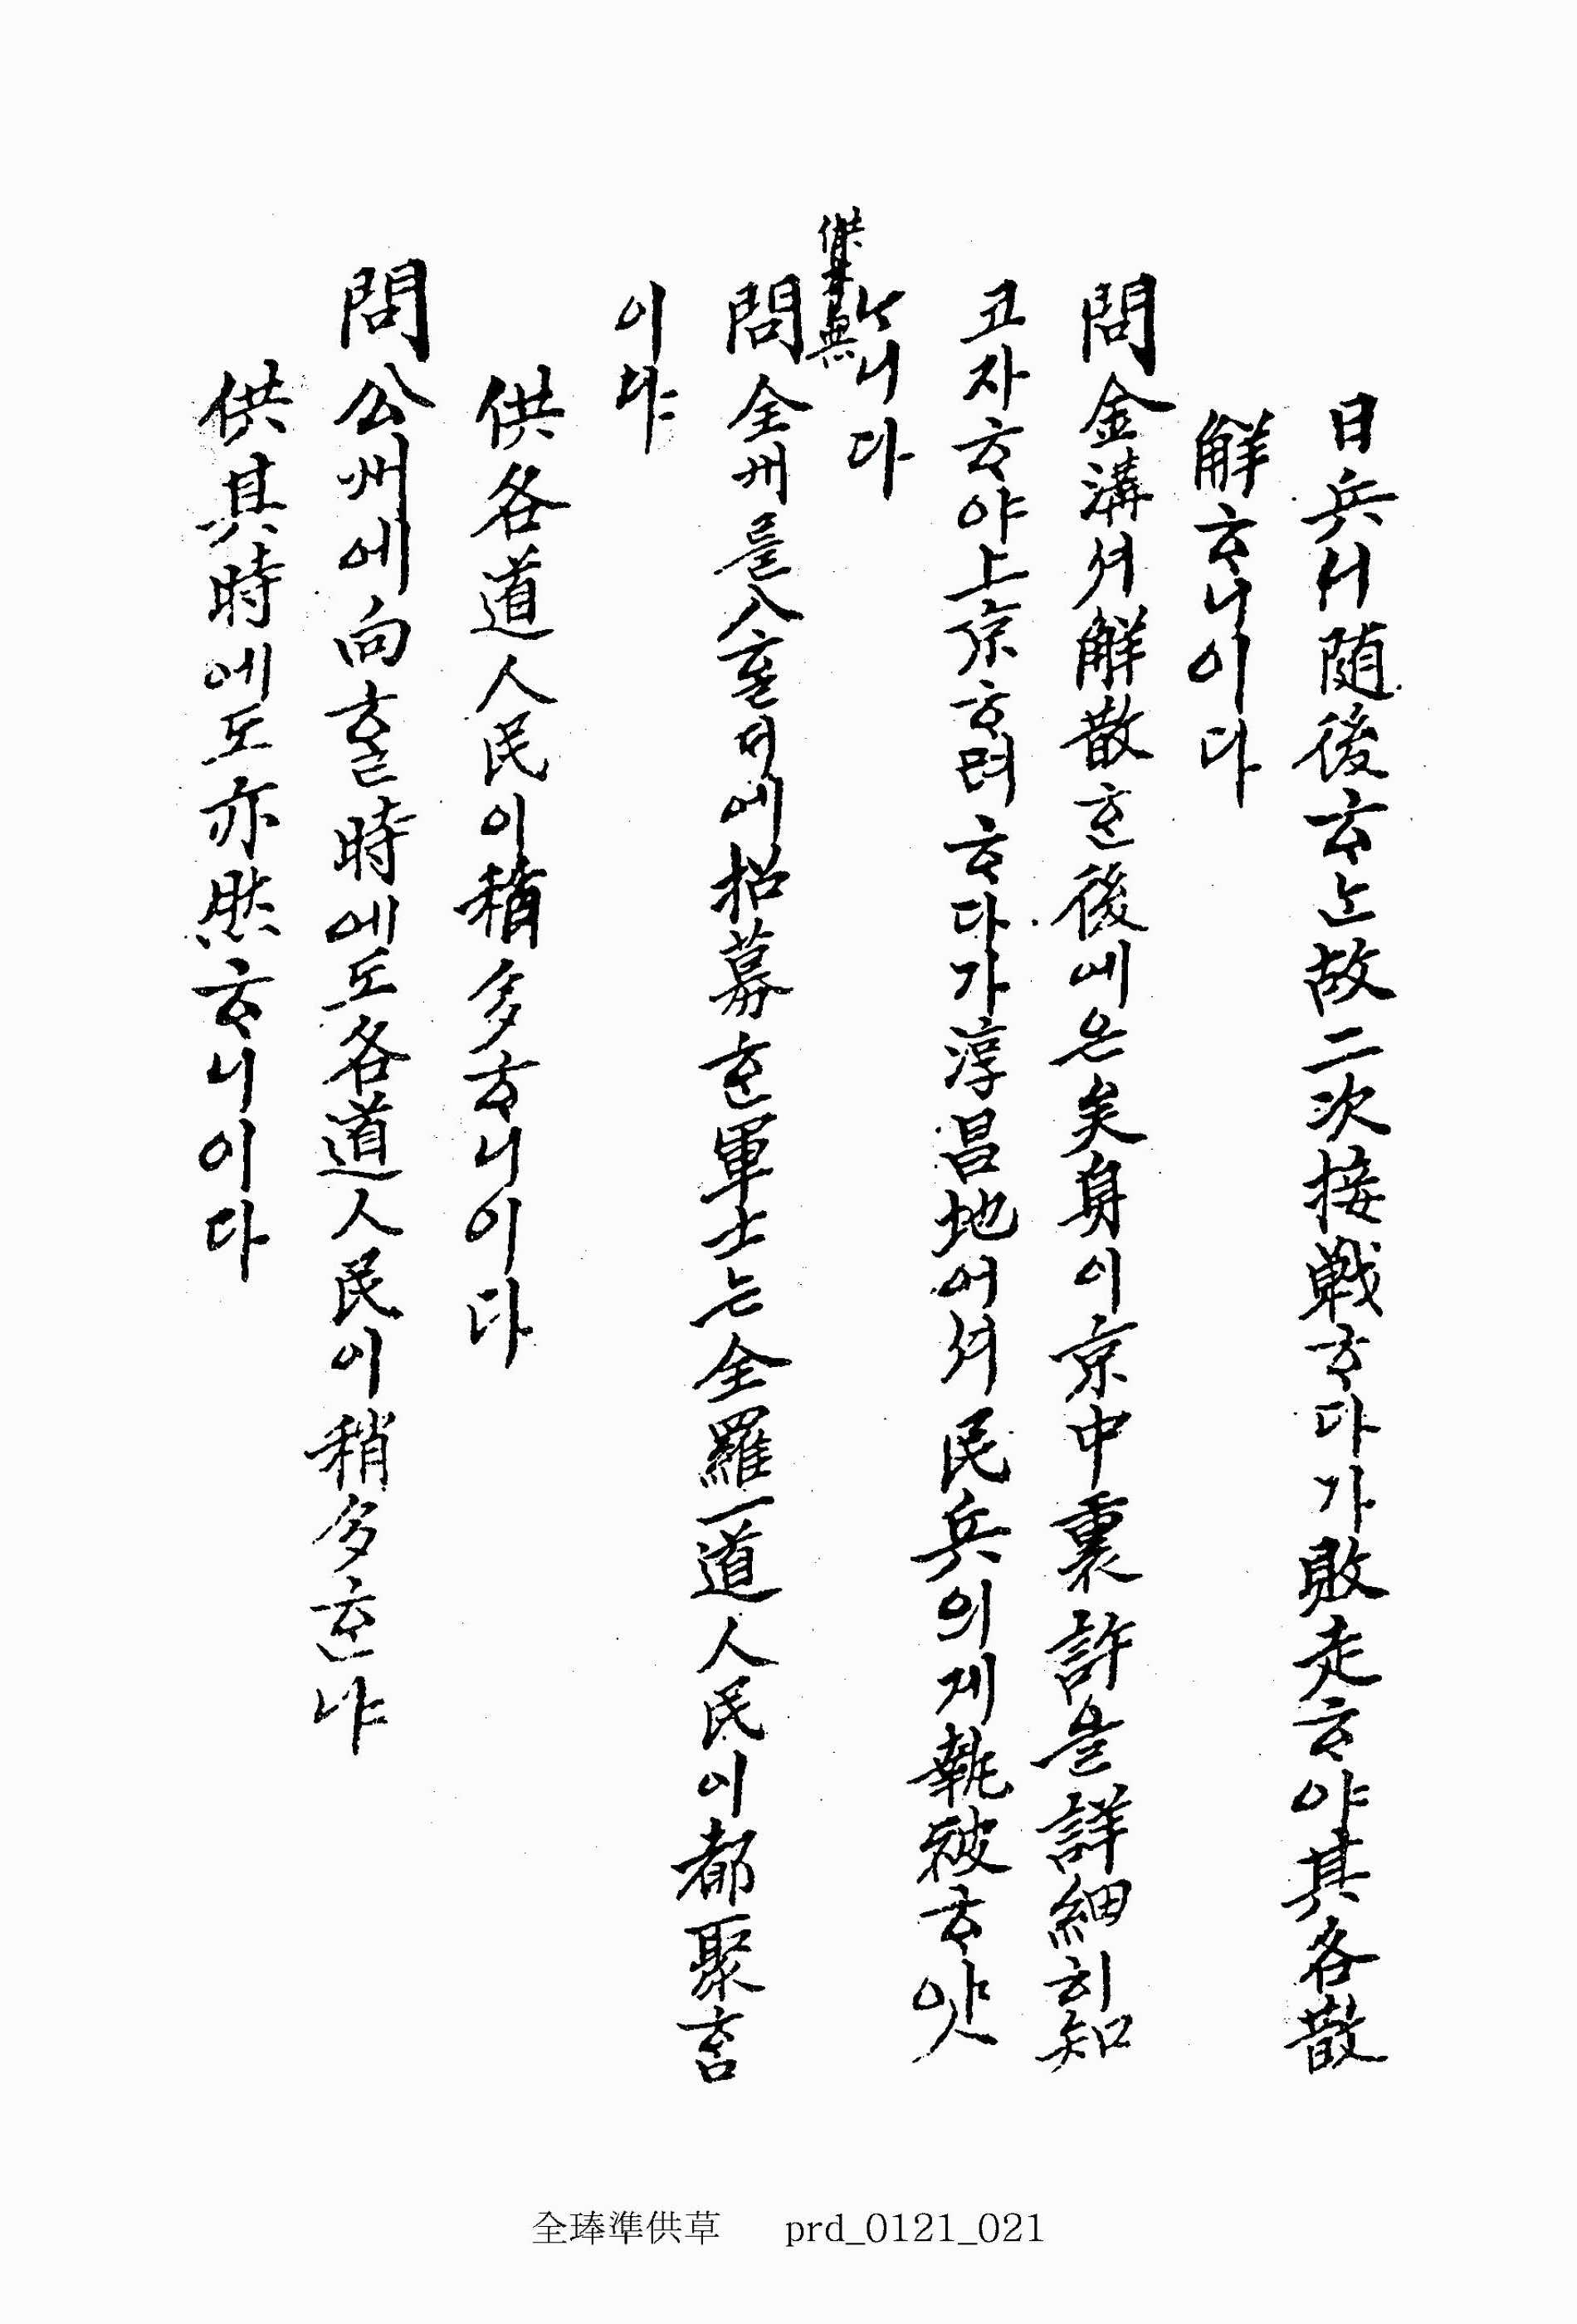 日兵니 随後ᄒᆞᄂᆞᆫ故 二次接戦ᄒᆞ다가 敗走ᄒᆞ야 其各散
解ᄒᆞ니이다
問 金溝셔 解散ᄒᆞᆫ後에은 矣身이 京中裏許을 詳細히 知
코자ᄒᆞ야 上京ᄒᆞ려ᄒᆞ다가 淳昌地어셔 民兵의게 執被ᄒᆞ얏
ᄂᆞ니다
供無
問 全州를 入ᄒᆞᆯ 에 招募ᄒᆞᆫ 軍士는 全羅一道人民이 都聚ᄒᆞᆷ
이냐
供 各道人民이 稍多ᄒᆞ니이다
問 公州에 向ᄒᆞᆯ 時에도 各道人民이 稍多ᄒᆞᆫ냐
供 其時에도 亦然ᄒᆞ니이다
全琫準供草 prd_0121_021